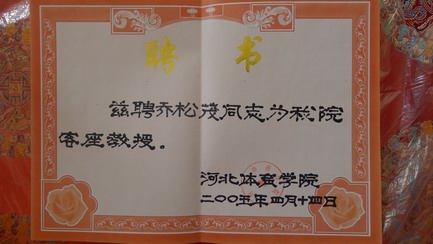 聘书
兹聘乔松茂同志为我院
客座教授。
河北体育学院
二〇〇五年四月十四日